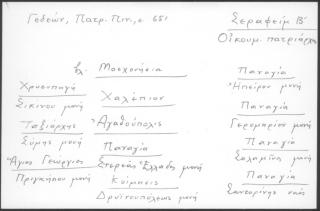 Γεδεών, Πατρ. Πιν., σ 651
Σεραφείμ Β'
Οἰκουμ. πατριάρχης
βλ. Μοσχονήσια
Παναγία
Ἠπείρου μονή
Χρυσοπηγή
Σικίνου μονή
Χαλέπιον
Παναγία
Γηρομερίου μονή
Ταξιάρχης
Σύμης μονή
Ἀγαθούπολις
Παναγία
Σαλαμῖνος μονή
Παναγία
Στερεᾶς Ἑλλάδος μονή
Ἅγιος Γεώργιος
Πριγκήπου μονή
Κοίμησις
Δρυϊνουπόλεως μονή
Παναγία
Σαντορίνης ναός